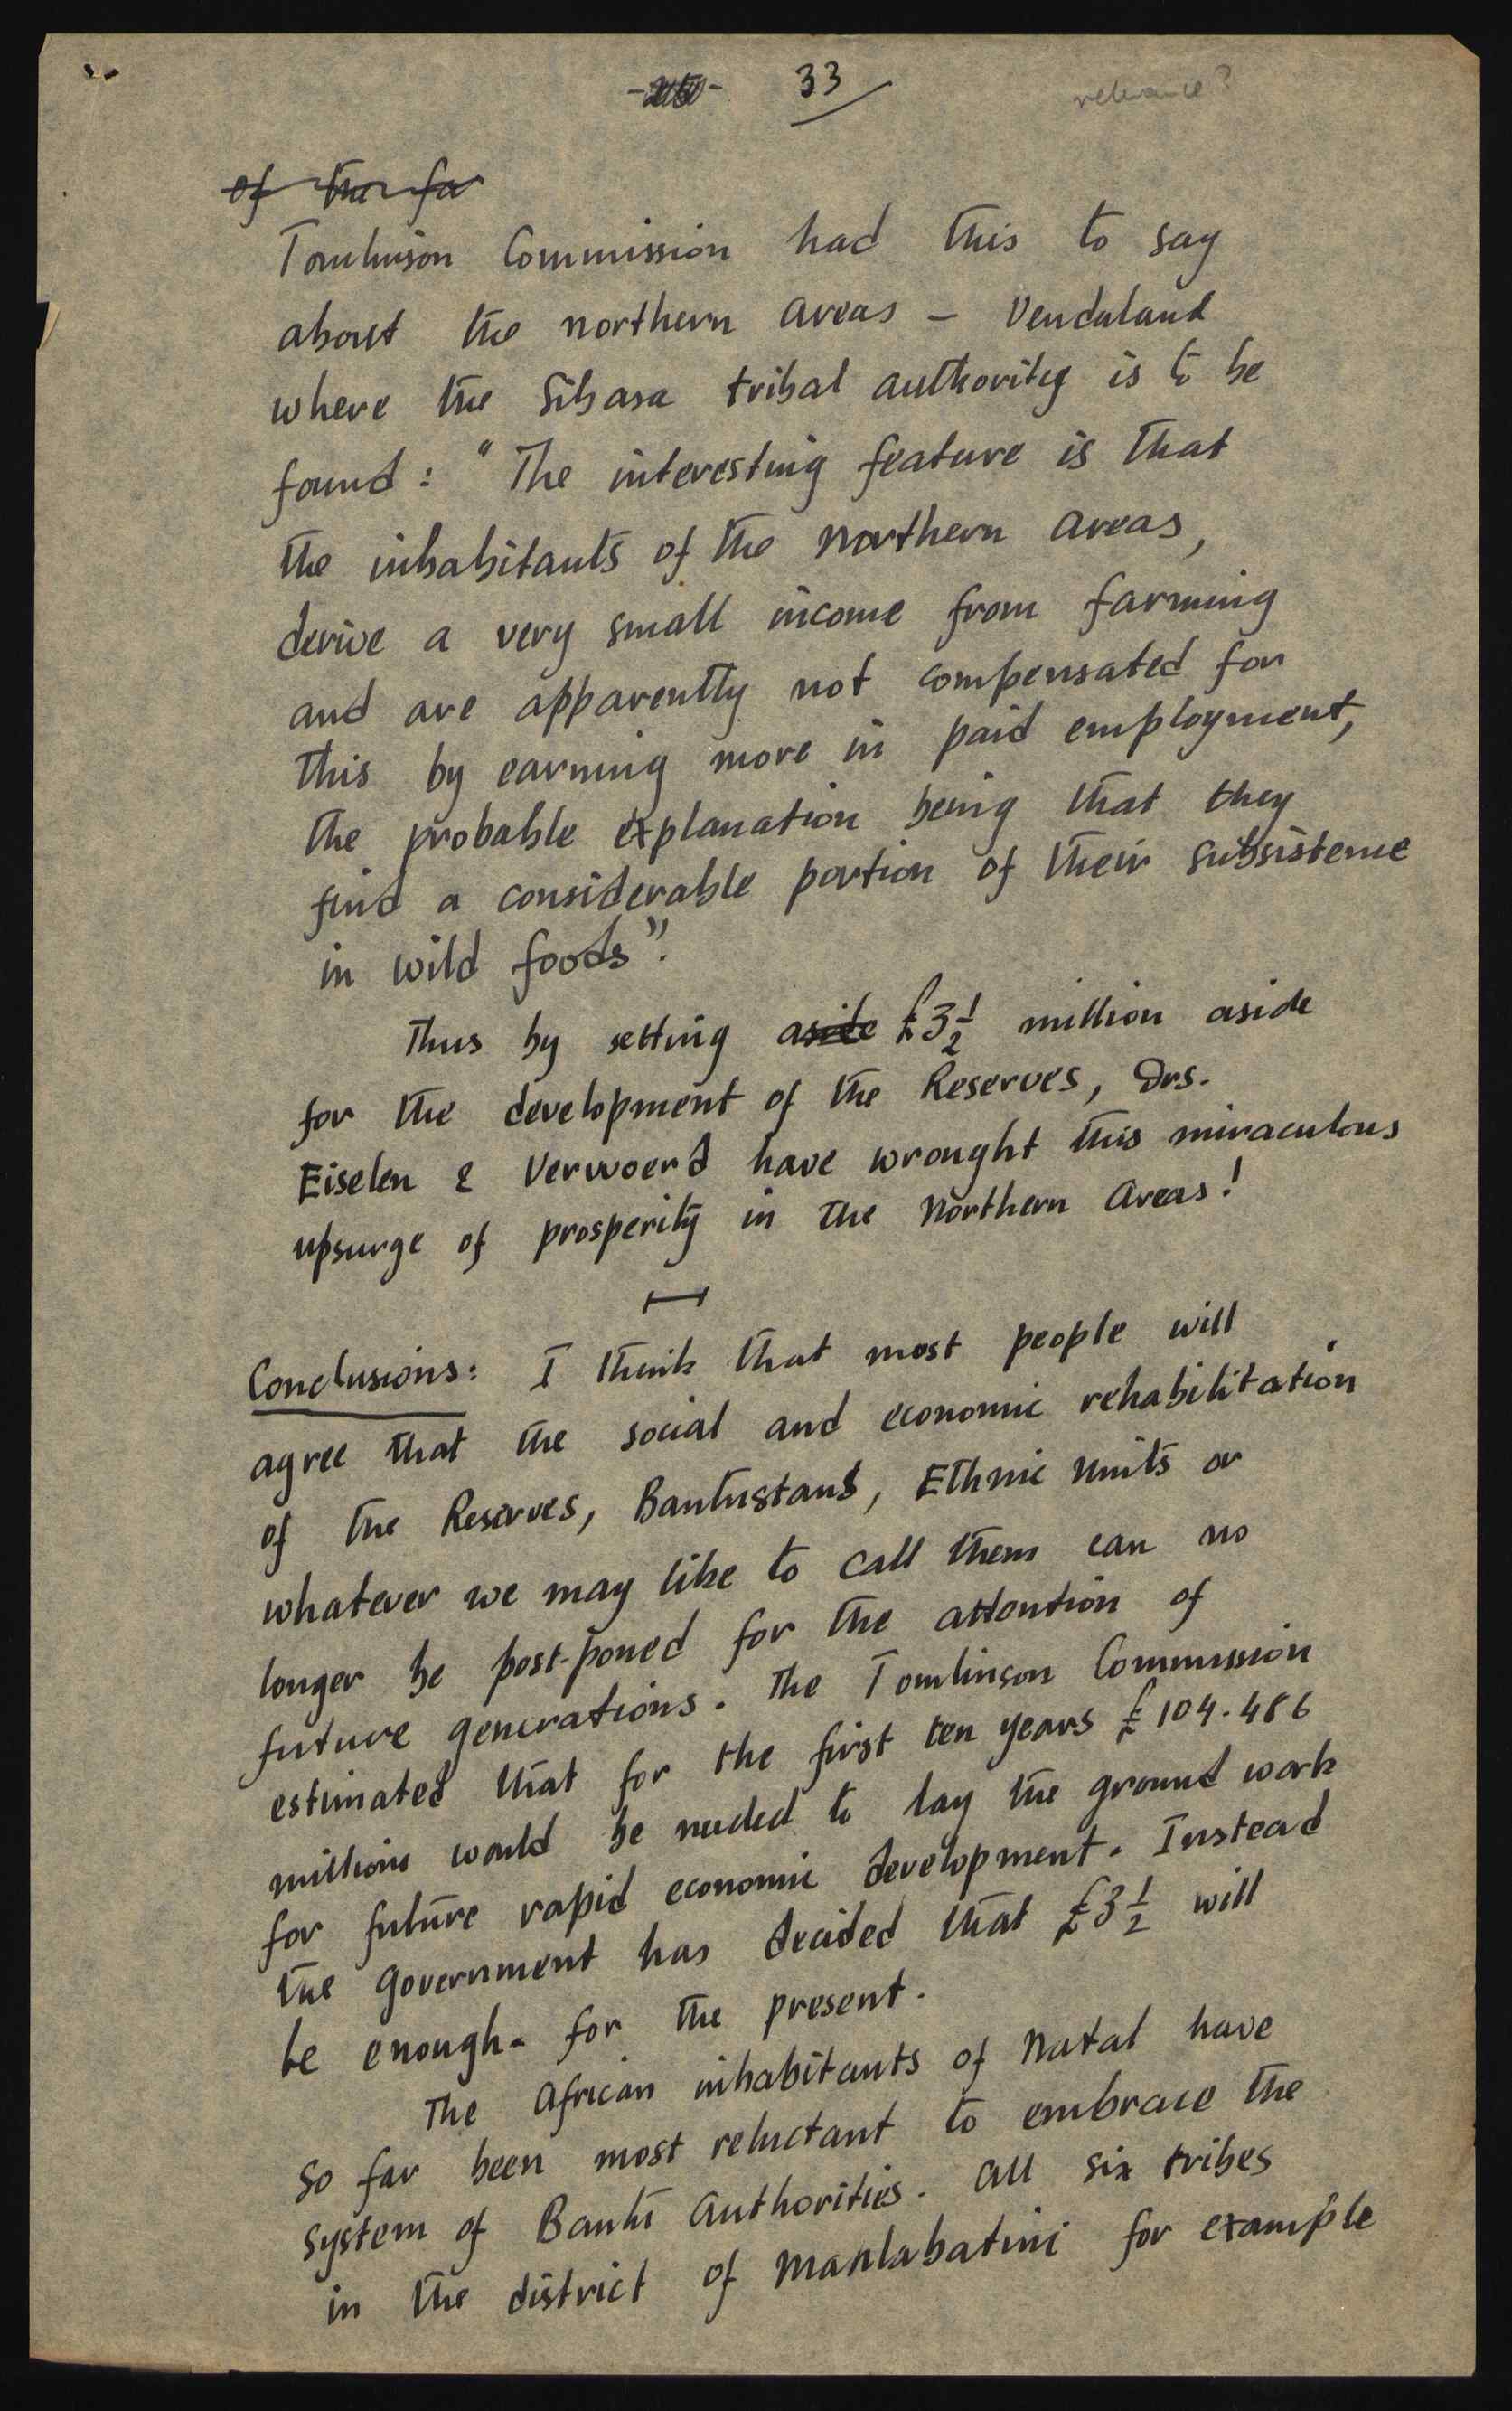 33
relevance?
of the fa
Tomlinson Commission had this to say
about the northern areas – Vendaland
where the Sibasa tribal authority is to be
found: "The interesting feature is that
the inhabitants of the Northern areas,
derive a very small income from farming
and are apparently not compensated for
this by earning more in paid employment,
the probable explanation being that they
find a considerable portion of their subsistence
in wild foods".
Thus by setting aside £3½ million aside
for the development of the Reserves, Drs.
Eiselen & Verwoerd have wrought this miraculous
upsurge of prosperity in the Northern areas!
Conclusions: I think that most people will
agree that the social and economic rehabilitation
of the Reserves, Bantustans, Ethnic units or
whatever we may like to call them can no
longer be post-poned for the attention of
future generations. The Tomlinson Commission
estimated that for the first ten years £104.486
millions would be needed to lay the ground work
for future rapid economic development. Instead
the government has decided that £3½ will
be enough - for the present.
The African inhabitants of Natal have
so far been most reluctant to embrace the
system of Bantu Authorities. All six tribes
in the district of Mahlabatini for example